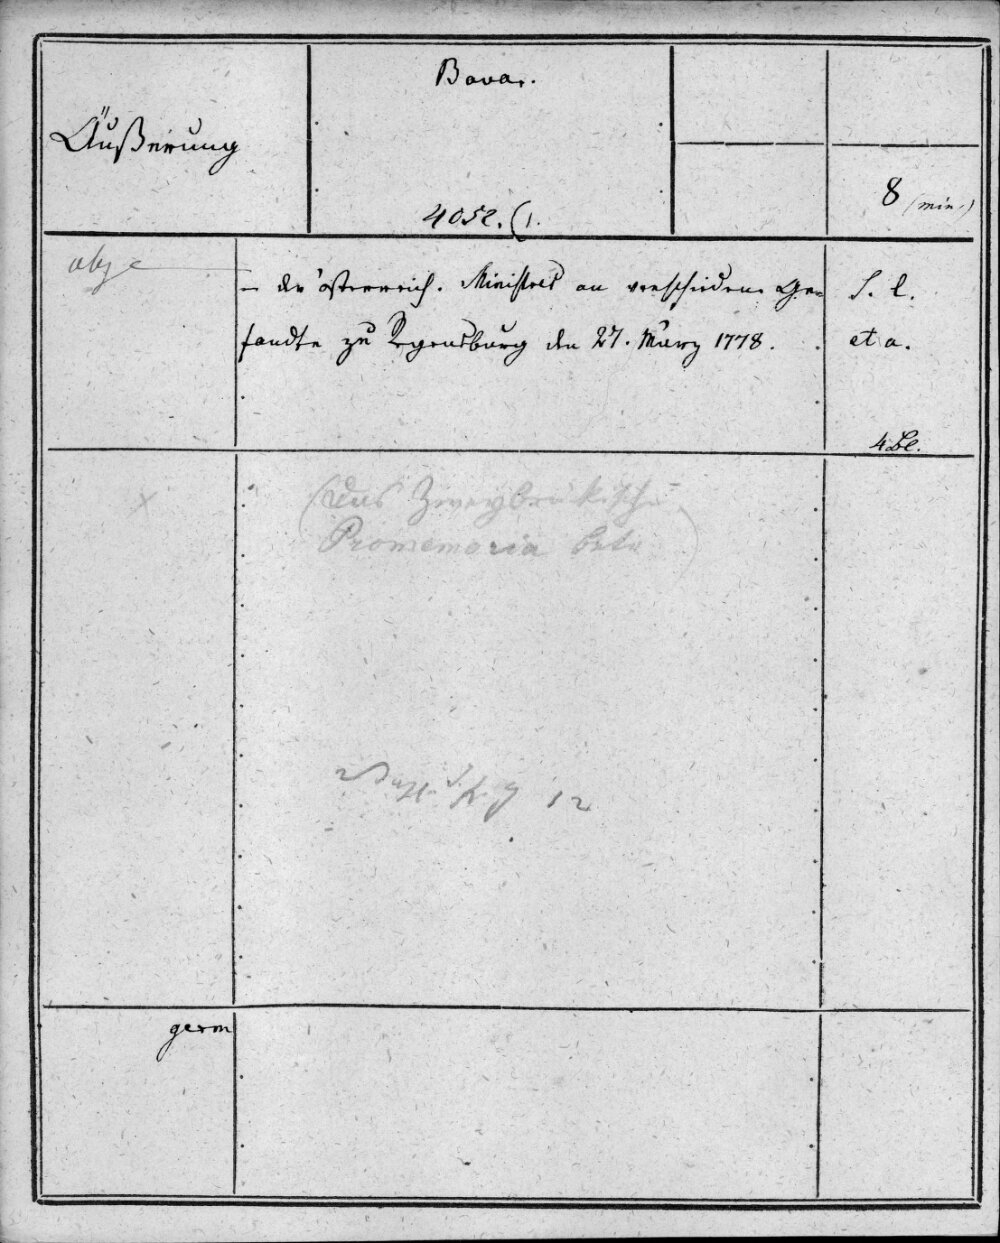 Bavar.
Äußerung
8 (min.)
4052. (1.
– der österreich. Ministers an verschiedene Ge=
sandte zu Regensburg den 27. März 1778.
S. l.
et a.
4 Bl.
(das Zweybrükische
Promemoria betr)
12
germ